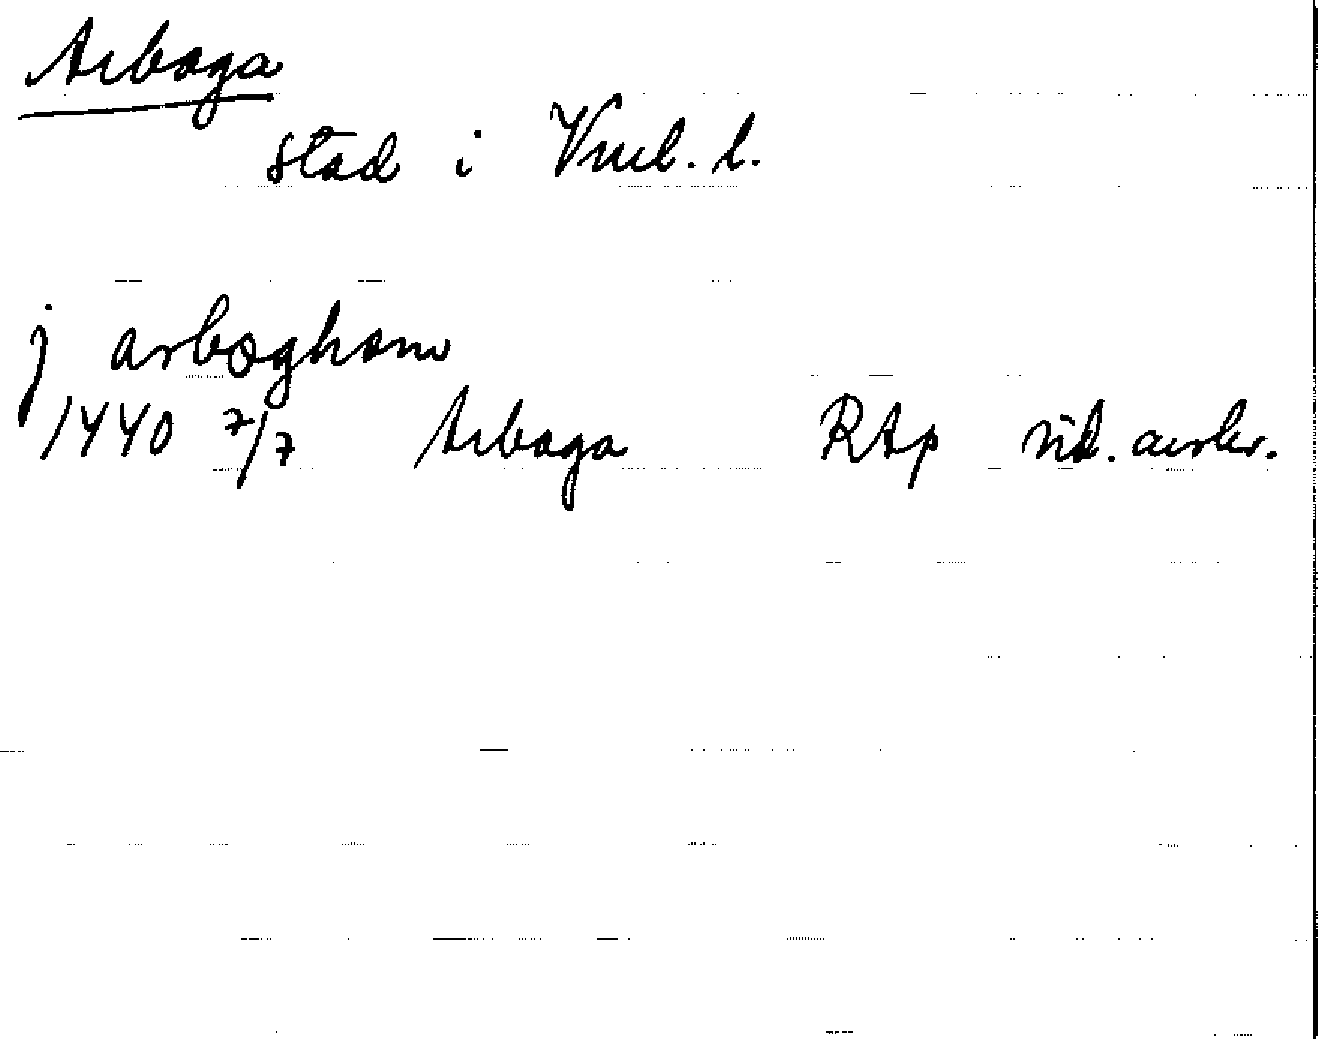 Arboga
stad i Vml. l.
j arbogham
1440 7/7 Arboga RAp sid. avskr.